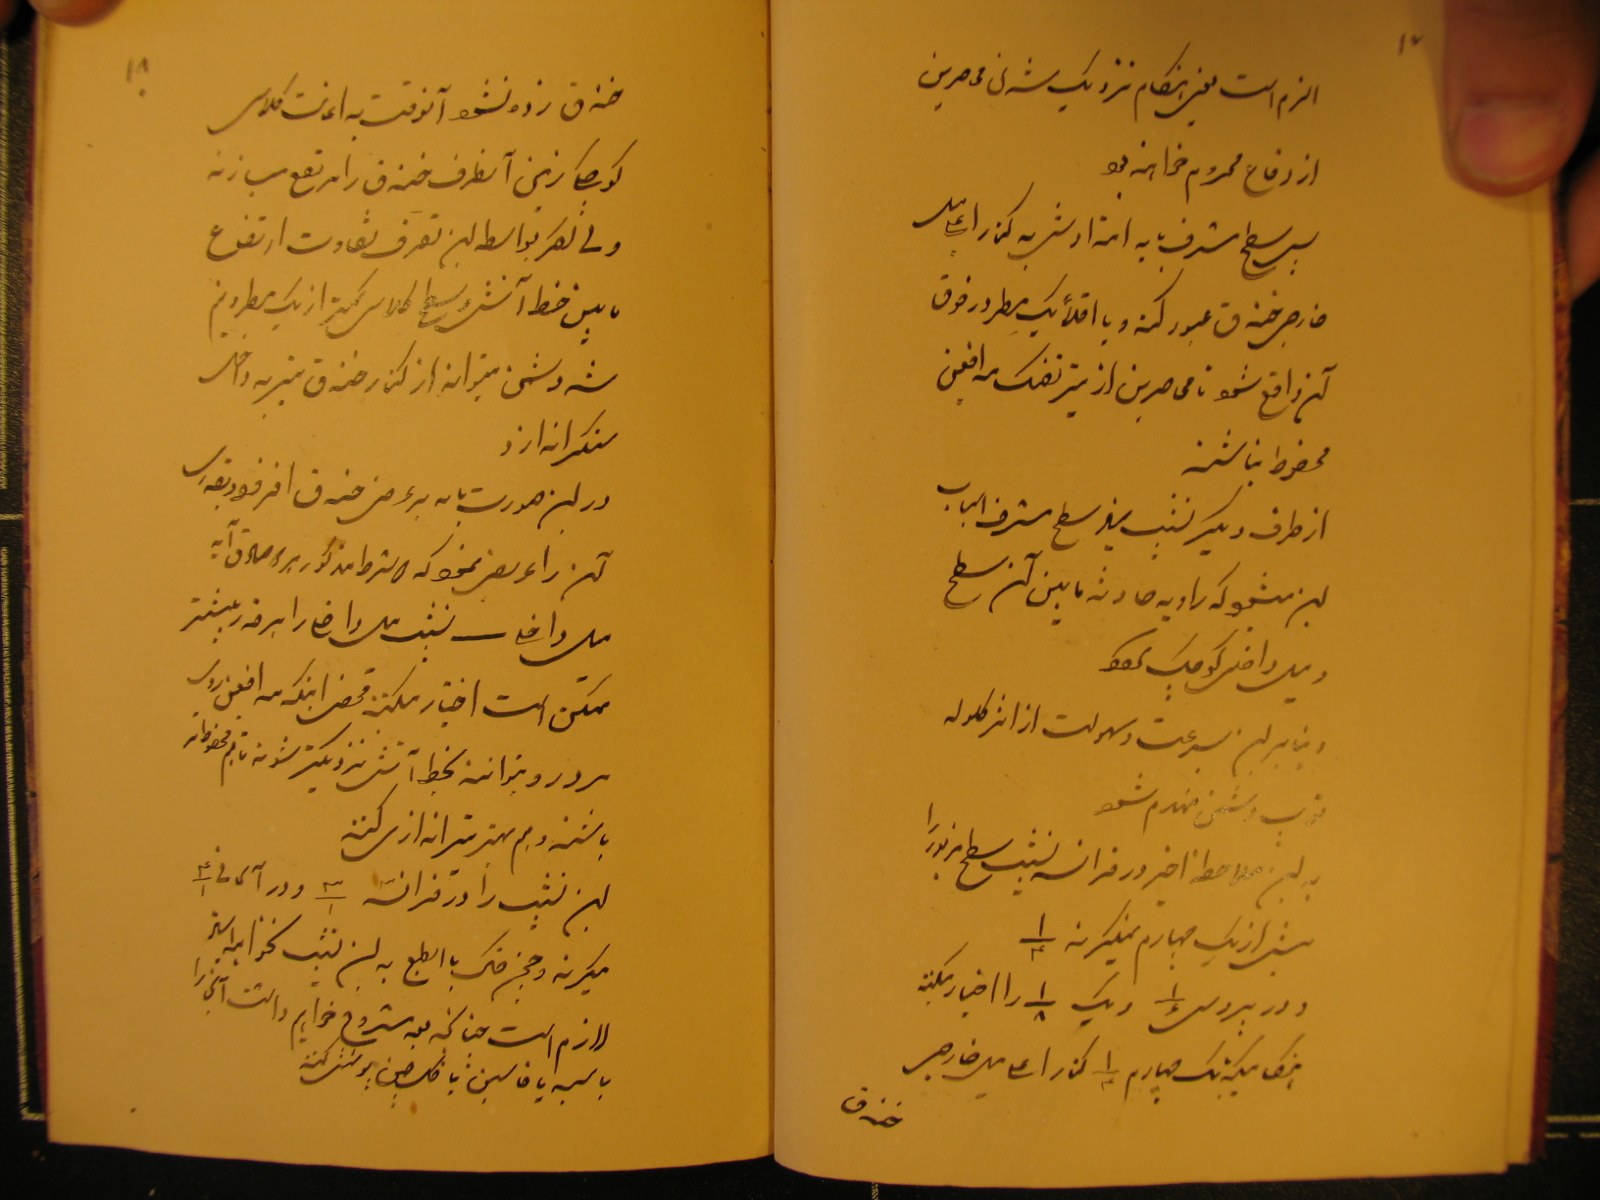 ۱۷
الزم است یعنی هنگام نزدیک شدن محاصرین
از دفاع محروم خواهند بود
پس سطح مشرف باید امتدادش به کنار اعلای میل
خارجی خندق عبور کند و یا اقلاً یک مطر در فوق
آن واقع شود تا محاصرین از تیر تفنگ مدافعین
محفوظ نباشند
از طرف دیگر نشیب سطح مشرف اسباب
این میشود که زاویه حادثه مابین آن سطح
و میل داخلی کوچک بود
و بنابراین بسرعت و سهولت از اثر گلوله
توپ دشمن منهدم شود
به این ملاحظه اخیر در فرانسه نشیب سطح مزبور را
بیش از یک چهارم نمیگیرند ۱/۴
و در پروس ۱/۶ و یک ۱/۸ را اختیار میکنند
هنگامیکه یک چهارم ۱/۴ کنار اعلا میل خارجی
خندق
۱۸
خندق زده نشود آنوقت به اعانت گلاسی
کوچکی زمین آنطرف خندق را مرتفع میسازند
ولی اگر بواسطه این تصرف تفاوت ارتفاع
مابین خط آتش و سطح گلاسی کمتر از یک مطر و نیم
شد دشمن میتواند از کنار خندق تیر به داخل
سنگر اندازد
در این صورت باید بعرض خندق افزود و بقدری
آن را عریض نمود که شرط مذکور بر او صادق آید
میل داخلی ــ نشیب میل داخل را هر قدر بیشتر
ممکن است اختیار میکنند محض اینکه مدافعین روی
مردرو بتوانند بخط آتش نزدیکتر شوند تا هم محفوظ
باشند و هم بهتر تیراندازی کنند
این نشیب را در فرانسه ۳/۱ و در آلمان ۴/۱
میگیرند و چون خاک بالطبع به این نشیب نخواهد ایستاد
لازم است چنانکه بعد مشروح خواهیم داشت آن را
با سبد یا فاسین یا پوشش کنند